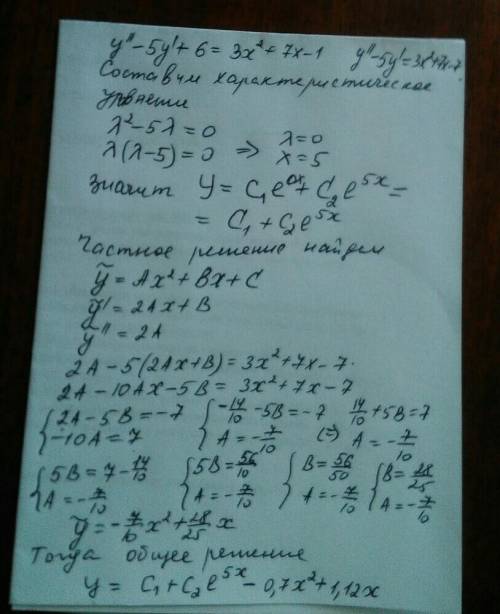 y'' - 5y' + 6 = 3x² + 7x - 1    y'' - 5y' = 3x² + 7x - 7
Составим характеристическое
уравнение
λ² - 5λ = 0
λ(λ - 5) = 0 => λ = 0
x = 5
Значит y = C₁e⁰ˣ + C₂e⁵ˣ =
= C₁ + C₂e⁵ˣ
Частное решение найдем
ỹ = Ax² + Bx + C
ỹ' = 2Ax + B
ỹ'' = 2A
2A - 5(2Ax + B) = 3x² + 7x - 7.
2A - 10Ax - 5B = 3x² + 7x - 7
{ 2A - 5B = -7    { -14/10 - 5B = -7    14/10 + 5B = 7
{ -10A = 7    { A = -7/10    (=)    A = -7/10
{ 5B = 7 - 14/10    { 5B = 56/10    { B = 56/50    { B = 28/25
{ A = -7/10    { A = -7/10    { A = -7/10    { A = -7/10
ỹ = -7/10 x² + 28/25 x
Тогда общее решение
y = C₁ + C₂e⁵ˣ - 0,7x² + 1,12x